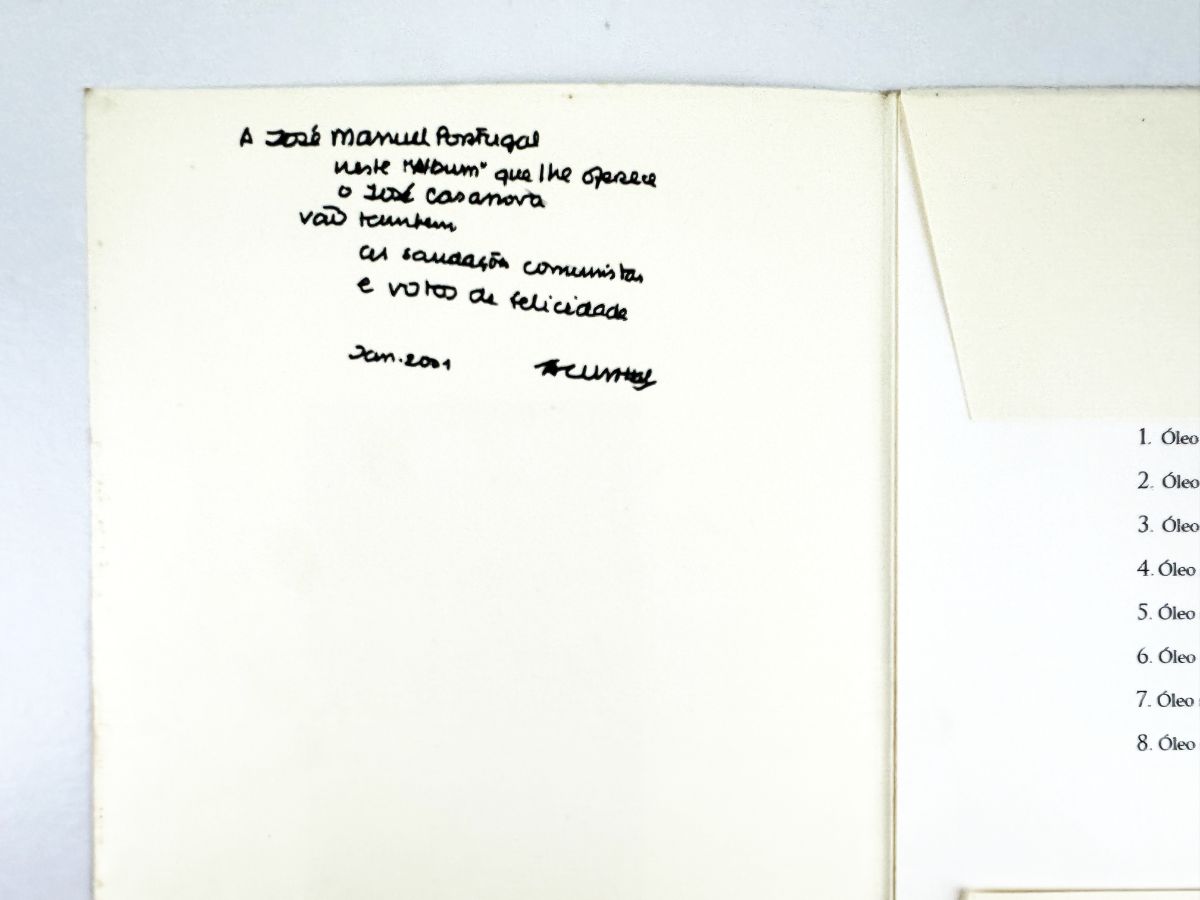 A José Manuel Portugal
neste "Album" que lhe oferece
o José Casanova
vão também
as saudações comunistas
e votos de felicidade
Jan. 2001 ACunhal
1. Óleo
2. Óleo
3. Óleo
4. Óleo
5. Óleo
6. Óleo
7. Óleo
8. Óleo